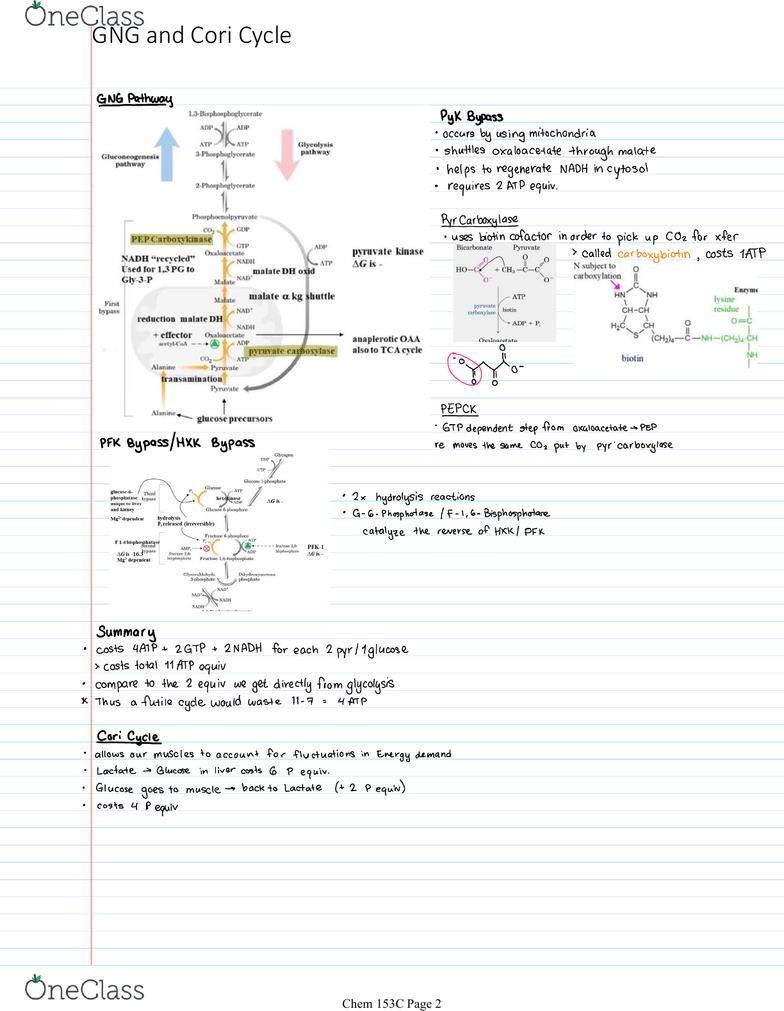 OneClass
GNG and Cori Cycle
GNG Pathway
1,3-Bisphosphoglycerate
ADP ADP
ATP ATP
3-Phosphoglycerate
Gluconeogenesis
pathway
Glycolysis
pathway
2-Phosphoglycerate
Phosphoenolpyruvate
CO₂ GDP
PEP Carboxykinase
GTP
Oxaloacetate
NADH "recycled"
Used for 1,3 PG to
Gly-3-P
NADH
malate DH oxid
NAD⁺
Malate
ADP
ATP
pyruvate kinase
ΔG is -
First
bypass
Malate
malate α kg shuttle
NAD⁺
reduction malate DH
NADH
+ effector
Oxaloacetate
acetyl-CoA
ADP
pyruvate carboxylase
CO₂ ATP
anaplerotic OAA
also to TCA cycle
Alanine
Pyruvate
transamination
Pyruvate
Alanine
glucose precursors
PyK Bypass
• occurs by using mitochondria
• shuttles oxaloacetate through malate
• helps to regenerate NADH in cytosol
• requires 2 ATP equiv.
Pyr Carboxylase
• uses biotin cofactor in order to pick up CO₂ for xfer
> called carboxybiotin, costs 1ATP
Bicarbonate Pyruvate
HO-C O O⁻ + CH₃-C-C O O O⁻
ATP
pyruvate
carboxylase
biotin
ADP + Pᵢ
Oxaloacetate
N subject to
carboxylation
O
C
HN NH
CH-CH
H₂C CH
S
O
(CH₂)₄-C-NH-(CH₂)₄-CH
Enzyme
lysine
residue
O=C
NH
biotin
⁻O O O O O⁻
PEPCK
• GTP dependent step from oxaloacetate → PEP
re moves the same CO₂ put by pyr carboxylose
PFK Bypass/HXK Bypass
Glycogen
UTP
Glucose 1-phosphate
glucose-6-
phosphatase
unique to liver
and kidney
Third
bypass
Pᵢ
Glucose
ATP
hexokinase
ADP
ΔG is -
Glucose 6-phosphate
Mg²⁺ dependent
hydrolysis
Pᵢ released (irreversible)
Fructose 6-phosphate
Pᵢ
ATP
ADP
AMP,
fructose 2,6-
bisphosphate
fructose 2,6-
bisphosphate
PFK-1
ΔG is -
F 1-6 bisphosphatase
Second
bypass
ΔG is -16.3
Mg²⁺ dependent
Fructose 1,6-bisphosphate
Glyceraldehyde
3-phosphate
Dihydroxyacetone
phosphate
NAD⁺
NAD⁺
NADH
NADH
• 2x hydrolysis reactions
• G-6-Phosphotase / F-1,6-Bisphosphotare
catalyze the reverse of HXK/ PFK
Summary
• costs 4ATP + 2GTP + 2NADH for each 2 pyr/1glucose
> costs total 11 ATP equiv
• compare to the 2 equiv we get directly from glycolysis
* Thus a futile cycle would waste 11-7 = 4 ATP
Cori Cycle
• allows our muscles to account for fluctuations in Energy demand
• Lactate → Glucose in liver costs 6 P equiv.
• Glucose goes to muscle → back to Lactate (+ 2 P equiv)
• costs 4 P equiv
OneClass
Chem 153C Page 2